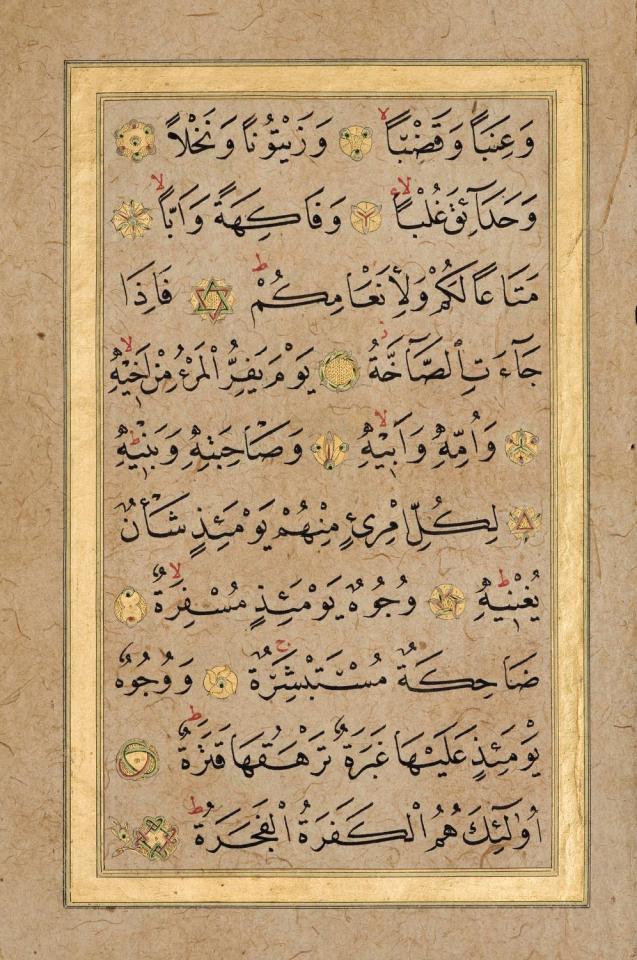 وَعِنَبًا وَقَضْبًا ۙ وَزَيْتُونًا وَنَخْلًا
وَحَدَآئِقَ غُلْبًا ۙ وَفَاكِهَةً وَاَبًّا ۙ
مَتَاعًا لَكُمْ وَلِاَنْعَامِكُمْ ۜ فَاِذَا
جَآءَتِ الصَّآخَّةُ ز يَوْمَ يَفِرُّ الْمَرْءُ مِنْ اَخٖيهِ ۙ
وَاُمِّهٖ وَاَبٖيهِ ۙ وَصَاحِبَتِهٖ وَبَنٖيهِ ط
لِكُلِّ امْرِئٍ مِنْهُمْ يَوْمَئِذٍ شَأْنٌ
يُغْنٖيهِ ط وُجُوهٌ يَوْمَئِذٍ مُسْفِرَةٌ ۙ
ضَاحِكَةٌ مُسْتَبْشِرَةٌ ج وَوُجُوهٌ
يَوْمَئِذٍ عَلَيْهَا غَبَرَةٌ تَرْهَقُهَا قَتَرَةٌ ط
اُولٰٓئِكَ هُمُ الْكَفَرَةُ الْفَجَرَةُ ط